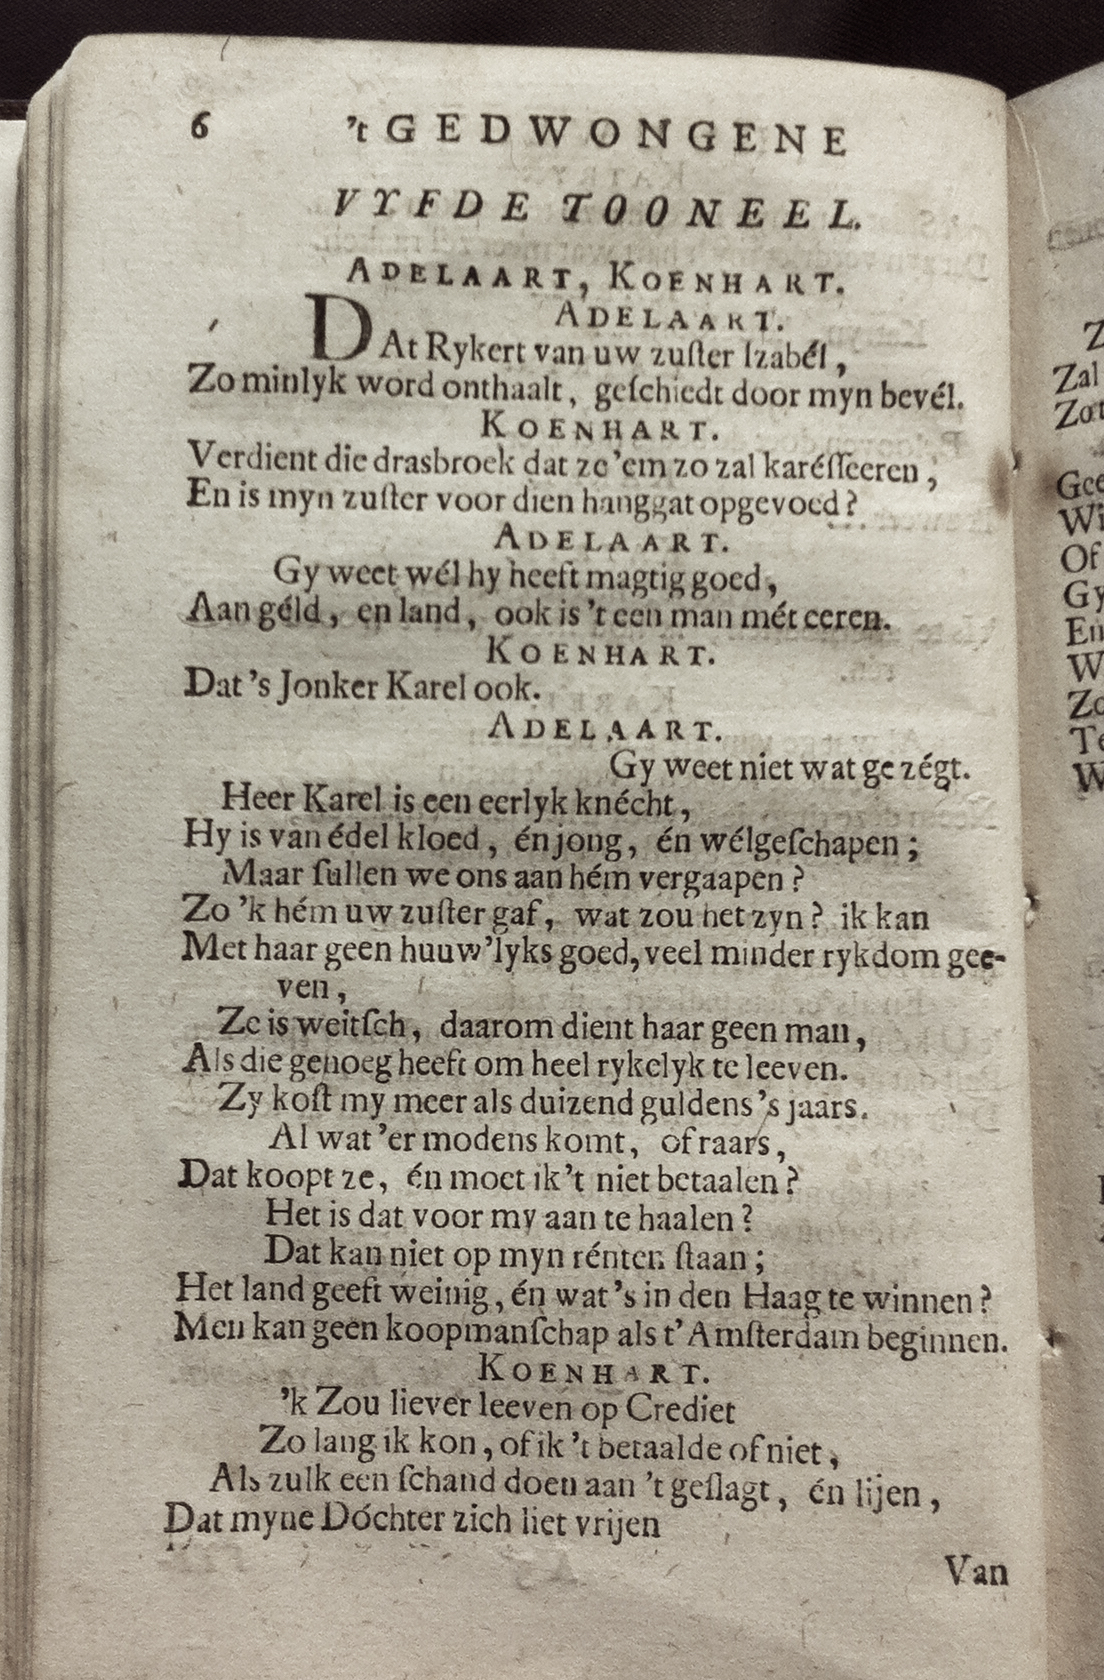 6 't GEDWONGENE
VYFDE TOONEEL.
ADELAART, KOENHART.
ADELAART.
DAt Rykert van uw zuſter Izabél,
Zo minlyk word onthaalt, geſchiedt door myn bevél.
KOENHART.
Verdient die drasbroek dat ze 'em zo zal karéſſeeren,
En is myn zuſter voor dien hanggat opgevoed?
ADELAART.
Gy weet wél hy heeft magtig goed,
Aan géld, en land, ook is 't een man mét eeren.
KOENHART.
Dat 's Jonker Karel ook.
ADELAART.
Gy weet niet wat ge zégt.
Heer Karel is een eerlyk knécht,
Hy is van édel kloed, én jong, én wélgeſchapen;
Maar ſullen we ons aan hém vergaapen?
Zo 'k hém uw zuſter gaf, wat zou het zyn? ik kan
Met haar geen huuw'lyks goed, veel minder rykdom gee-
ven,
Ze is weitſch, daarom dient haar geen man,
Als die genoeg heeft om heel rykelyk te leeven.
Zy koſt my meer als duizend guldens 's jaars.
Al wat 'er modens komt, of raars,
Dat koopt ze, én moet ik 't niet betaalen?
Het is dat voor my aan te haalen?
Dat kan niet op myn rénten ſtaan;
Het land geeft weinig, én wat 's in den Haag te winnen?
Men kan geen koopmanſchap als t' Amſterdam beginnen.
KOENHART.
'k Zou liever leeven op Crediet
Zo lang ik kon, of ik 't betaalde of niet,
Als zulk een ſchand doen aan 't geſlagt, én lijen,
Dat myne Dóchter zich liet vrijen
Van
Z
Zal
Zo
Gee
Wi
Of
Gy
En
W
Zo
Te
W